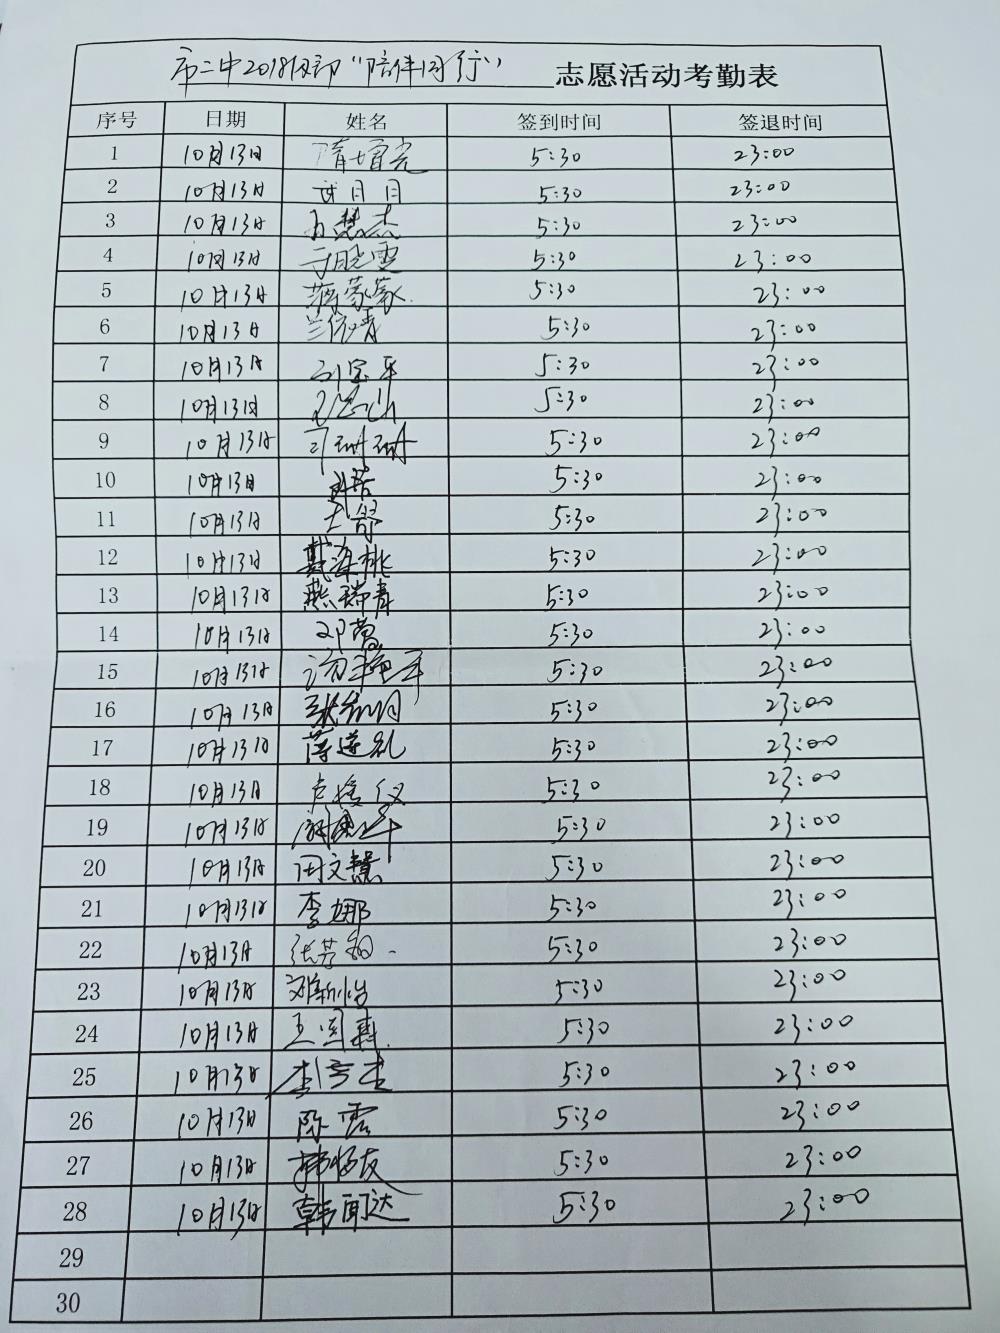 市二中2018级部“陪伴同行” 志愿活动考勤表
序号 日期 姓名 签到时间 签退时间
1 10月13日 隋增光 5:30 23:00
2 10月13日 5:30 23:00
3 10月13日 5:30 23:00
4 10月13日 于晓雪 5:30 23:00
5 10月13日 蒋蒙蒙 5:30 23:00
6 10月13日 5:30 23:00
7 10月13日 刘宝平 5:30 23:00
8 10月13日 5:30 23:00
9 10月13日 5:30 23:00
10 10月13日 5:30 23:00
11 10月13日 5:30 23:00
12 10月13日 5:30 23:00
13 10月13日 燕瑞青 5:30 23:00
14 10月13日 邓莺 5:30 23:00
15 10月13日 5:30 23:00
16 10月13日 5:30 23:00
17 10月13日 5:30 23:00
18 10月13日 5:30 23:00
19 10月13日 5:30 23:00
20 10月13日 田文慧 5:30 23:00
21 10月13日 李娜 5:30 23:00
22 10月13日 5:30 23:00
23 10月13日 邓新怡 5:30 23:00
24 10月13日 5:30 23:00
25 10月13日 5:30 23:00
26 10月13日 陈雲 5:30 23:00
27 10月13日 5:30 23:00
28 10月13日 韩闻达 5:30 23:00
29
30